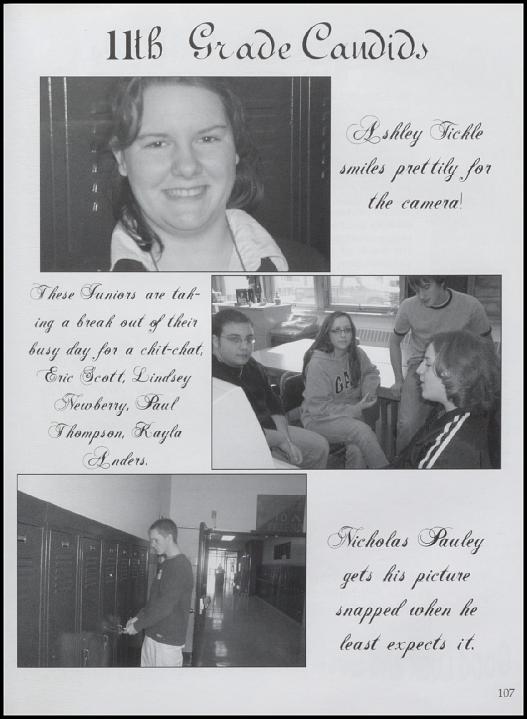 11th Grade Candids
Ashley Tickle
smiles prettily for
the camera!
These Juniors are tak-
ing a break out of their
busy day for a chit-chat,
Eric Scott, Lindsey
Newberry, Paul
Thompson, Kayla
Anders.
GA
Nicholas Pauley
gets his picture
snapped when he
least expects it.
107